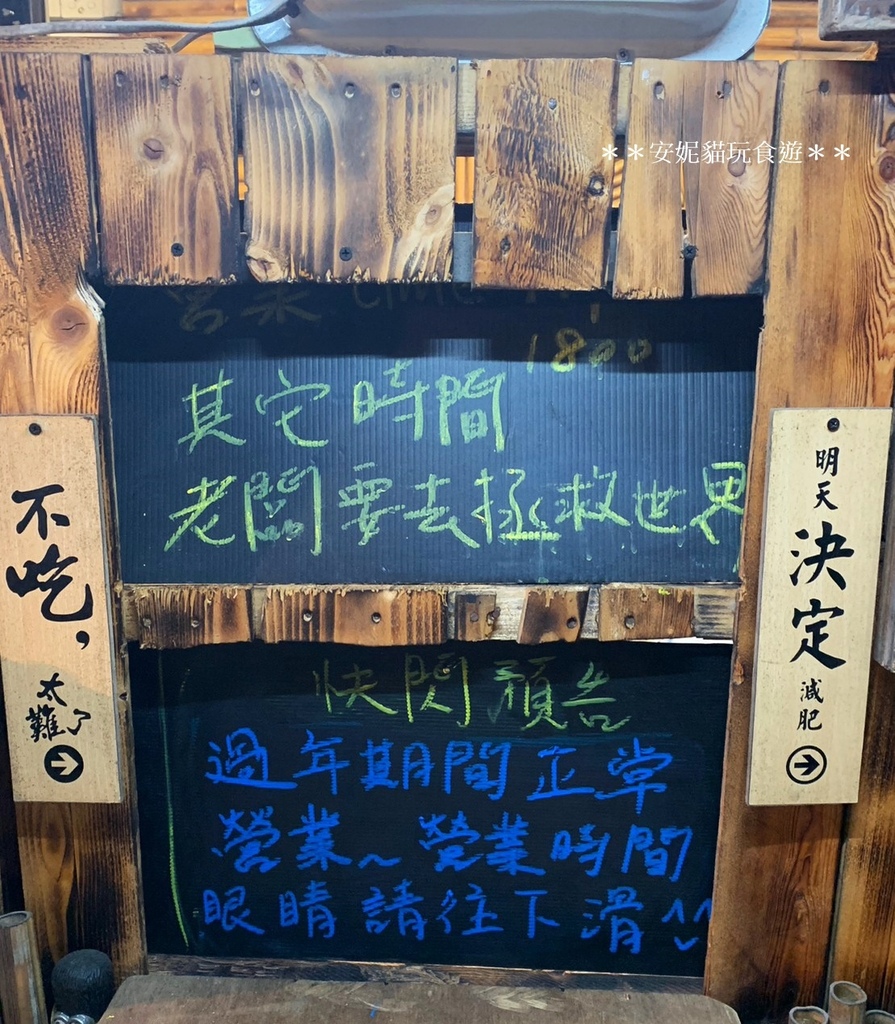 ＊＊安妮貓玩食遊＊＊
營業 time
1800
其它時間
老闆要去拯救世界
不吃，
太難了
明天
決定
減肥
快閃預告
過年期間正常
營業~營業時間
眼睛請往下滑^^